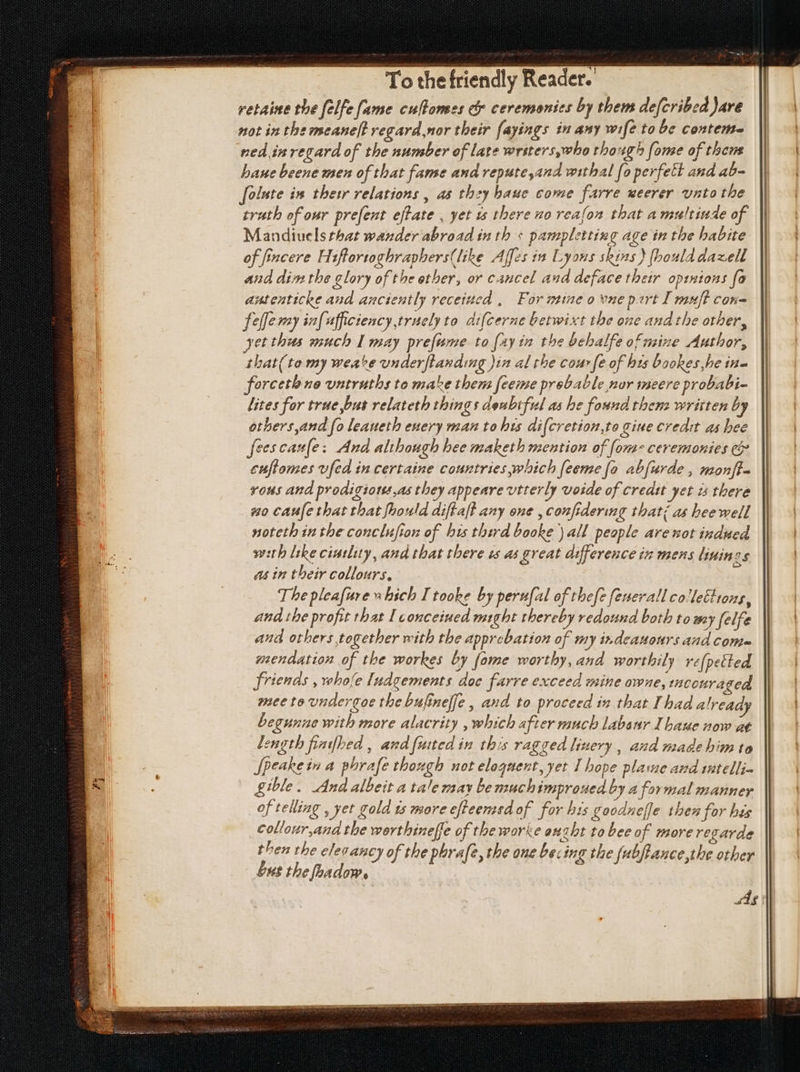 To the friendly Reader.
retaine the ſelfe ſame cuſtomes & ceremonies by them deſcribed) are
not in the meaneſt regard, nor their ſayings in any wiſe to be contem-
ned, in regard of the number of late writers, who though ſome of them
haue beene men of that fame and repute, and withal ſo perfect and ab-
ſolute in their relations, as they haue come farre neerer vnto the
truth of our preſent eſtate, yet is there no reaſon that a multitude of
Mandiuels that wander abroad in this pampletting age in the habite
of ſincere Hiſtorioghraphers (like Aſſes in Lyons skins) ſhould dazell
and dim the glory of the other, or cancel and deface their opinions ſo
autenticke and anciently receiued. For mine owne part I muſt con-
feſſe my inſufficiency, truely to diſcerne betwixt the one and the other,
yet thus much I may preſume to ſay in the behalfe of mine Author,
that (to my weake vnderſtanding) in al the courſe of his bookes, he in-
forceth no vntruths to make them ſeeme probable, nor meere probabi-
lites for true, but relateth things doubtful as he found them written by
others, and ſo leaueth euery man to his diſcretion, to giue credit as hee
ſees cauſe: And although hee maketh mention of ſome ceremonies &
cuſtomes vſed in certaine countries, which ſeeme ſo abſurde, monſt-
rous and prodigious, as they appeare vtterly voide of credit yet is there
no cauſe that that ſhould diſtaſt any one, conſidering that (as hee well
noteth in the concluſion of his third booke) all people are not indued
with like ciuility, and that there is as great difference in mens liuings
as in their collours.
The pleaſure which I tooke by peruſal of theſe ſeuerall collections,
and the profit that I conceiued might thereby redound both to my ſelfe
and others, together with the approbation of my indeauours and com-
mendation of the workes by ſome worthy, and worthily reſpected
friends, whoſe Iudgements doe farre exceed mine owne, incouraged
mee to vndergoe the buſineſſe, and to proceed in that I had already
begunne with more alacrity, which after much labour I haue now at
length finiſhed, and ſuited in this ragged liuery, and made him to
ſpeake in a phraſe though not eloquent, yet I hope plaine and intelli-
gible. And albeit a tale may be much improued by a formal manner
of telling, yet gold is more eſteemed of for his goodneſſe then for his
collour, and the worthineſſe of the worke ought to bee of more regarde
then the elegancy of the phraſe, the one beeing the ſubſtance, the other
but the ſhadow.
As